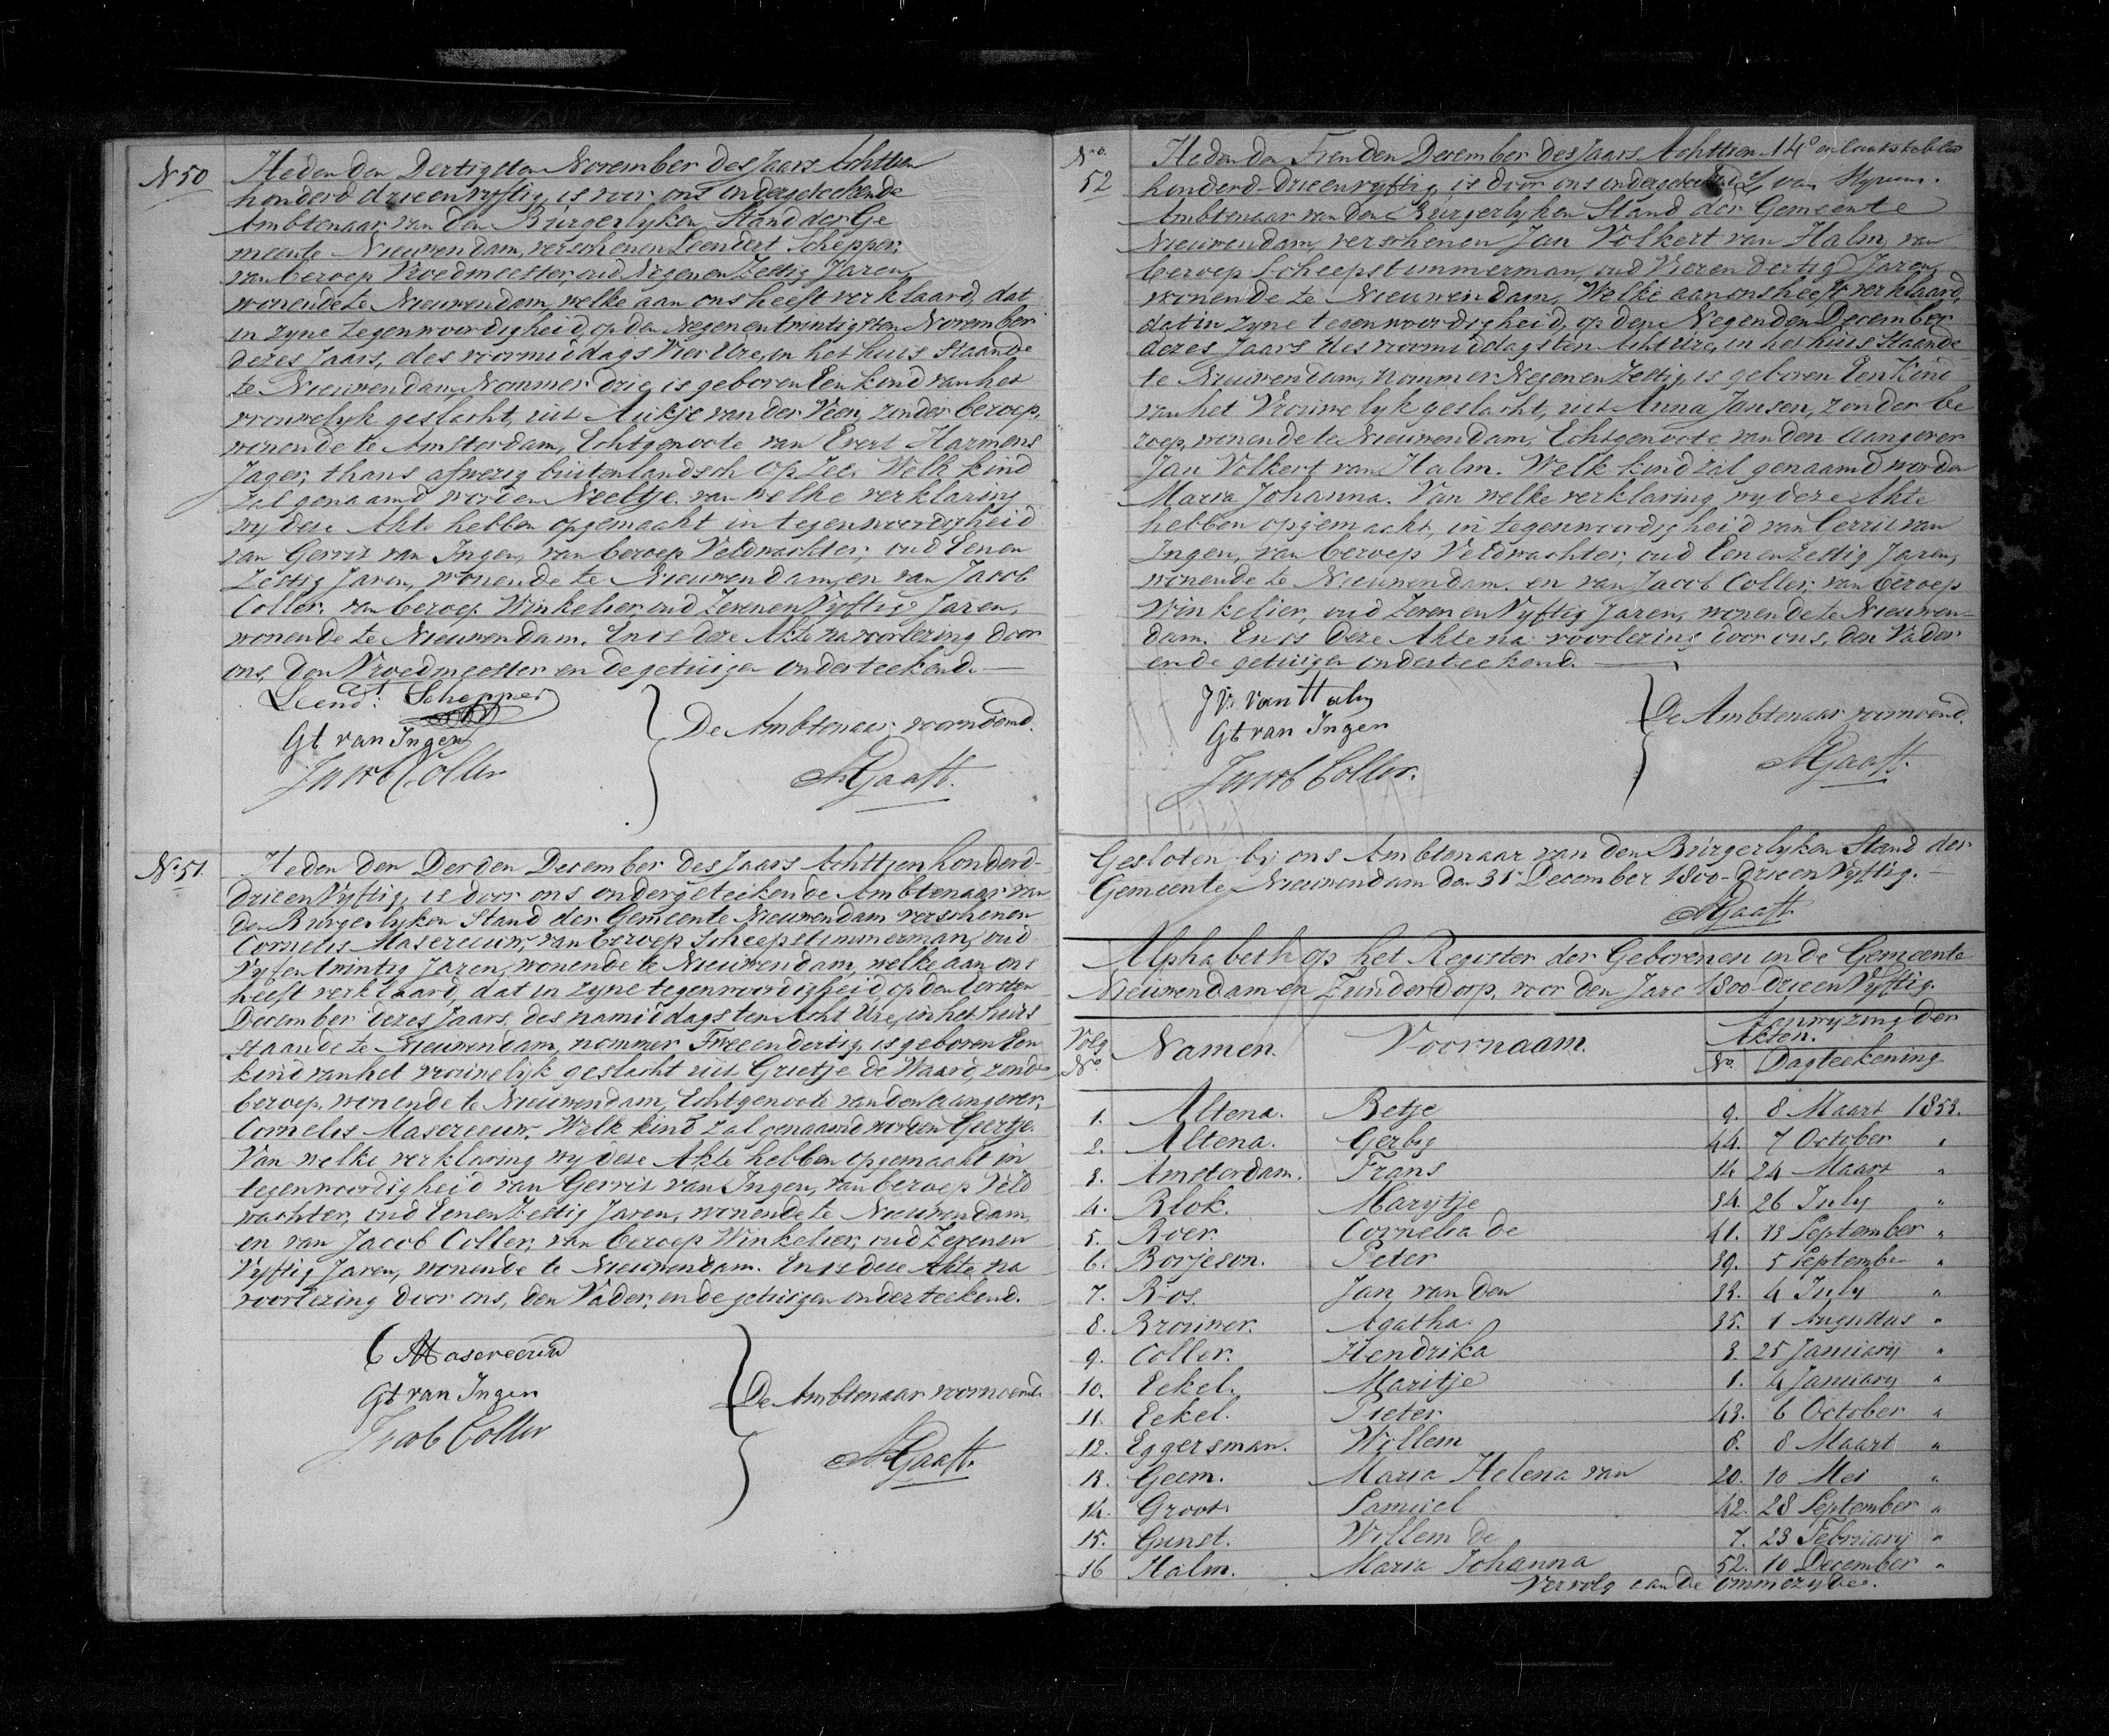 No 50
Heden den Dertigsten November des Jaars Achttien
honderd drieenvyftig, is voor ons ondergeteekende
Ambtenaar van den Burgerlyken Stand der Ge
meente Nieuwendam, verschenen Leendert Schepper,
van beroep Vroedmeester, oud Negenenzestig Jaren,
wonende te Nieuwendam, welke aan ons heeft verklaard, dat
in zyne tegenwoordigheid, op den Negenentwintigsten November
dezes Jaars, des voormiddags Vier Ure, in het huis staande
te Nieuwendam, Nommer drie, is geboren Een kind van het
vrouwelyk geslacht, uit Aukje van der Veen, zonder beroep,
wonende te Amsterdam, Echtgenoote van Evert Harmens
Jager, thans afwezig buitenlandsch op Zee. Welk kind
zal genaamd worden Neeltje. van welke verklaring
wy deze Akte hebben opgemaakt in tegenwoordigheid
van Gerrit van Ingen, van beroep Veldwachter, oud Eenen
Zestig Jaren, wonende te Nieuwendam, en van Jacob
Coller, van beroep Winkelier, oud Zevenen Vyftig Jaren,
wonende te Nieuwendam. En is deze Akte na voorlezing door
ons, den Vroedmeester en de getuigen onderteekend.
Leendt. Schepper
Gt van Ingen
Jacob Coller
De Ambtenaar voornoemd.
No 51.
Heden den Derden December des Jaars Achttien honderd-
drieenVyftig, is door ons ondergeteekende Ambtenaar van
den Burgerlyken Stand der Gemeente Nieuwendam verschenen
Cornelis Masereeuw, van beroep Scheepstimmerman, oud
Vyfentwintig Jaren, wonende te Nieuwendam, welke aan ons
heeft verklaard, dat in zyne tegenwoordigheid, op den Eersten
December dezes Jaars, des namiddags ten Acht Ure, in het huis
staande te Nieuwendam, nommer Tweeendertig, is geboren Een
kind van het vrouwelijk geslacht uit Grietje de Waard, zonder
beroep, wonende te Nieuwendam, Echtgenoote van den aangever,
Cornelis Masereeuw. Welk kind zal genaamd worden Geertje.
Van welke verklaring wy deze Akte hebben opgemaakt in
tegenwoordigheid van Gerrit van Ingen, van beroep Veld
wachter, oud Eenen Zestig Jaren, wonende te Nieuwendam,
en van Jacob Coller, van beroep Winkelier, oud Zevenen
Vyftig Jaren, wonende te Nieuwendam. En is deze Akte na
voorlezing door ons, den Vader, en de getuigen onderteekend.
C Masereeuw
Gt van Ingen
Jacob Coller
De Ambtenaar voornoemd.
No.
52
Heden den Tienden December des Jaars Achttien 14e en laatste blad
honderd-drieenvyftig, is door ons ondergeteekende
Ambtenaar van den Burgerlyken Stand der Gemeente
Nieuwendam, verschenen Jan Volkert van Halm, van
beroep Scheepstimmerman, oud Vierendertig Jaren,
wonende te Nieuwendam, Welke aan ons heeft verklaard,
dat in zyne tegenwoordigheid, op den Negenden December
dezes Jaars des voormiddags ten Acht Ure, in het huis Staande
te Nieuwendam, nommer Negenenzestig, is geboren Een Kind
van het Vrouwelyk geslacht, uit Anna Jansen, zonder be
roep, wonende te Nieuwendam, Echtgenoote van den Aangever
Jan Volkert van Halm. Welk kind zal genaamd worden
Maria Johanna. Van welke verklaring wy deze Akte
hebben opgemaakt, in tegenwoordigheid van Gerrit van
Ingen, van beroep Veldwachter, oud Eenenzestig Jaren,
wonende te Nieuwendam. en van Jacob Coller, van beroep
Winkelier, oud Zevenen Vyftig Jaren, wonende te Nieuwen-
dam. En is deze Akte na voorlezing door ons, den Vader
en de getuigen onderteekend.
J V van Halm
Gt van Ingen
Jacob Coller.
De Ambtenaar voornoemd.
Gesloten bij ons Ambtenaar van den Burgerlyken Stand der
Gemeente Nieuwendam den 31 December 1800-DrieenVyftig.
Alphabeth op het Register der Geborenen in de Gemeente
Nieuwendam en Zunderdorp, voor den Jare 1800-DrieenVyftig.
Volg No. Namen. Voornaam. Aanwyzing der Akten. No. Dagteekening
1. Altena. Betje 9. 8 Maart 1853.
2. Altena. Gerbig 44. 7 October "
3. Amsterdam. Frans 14 24 Maart "
4. Blok. Marijtje 34. 26 July "
5. Boer. Cornelia de 41. 13 September "
6. Borjeson. Peter 39. 5 September "
7. Bos. Jan van den 33. 4 July "
8. Brouwer. Agatha 35. 1 Augustus "
9. Coller. Hendrika 3. 25 January "
10. Eekel. Maritje 1. 4 January "
11. Eekel. Pieter 43. 6 October "
12. Eggersman. Willem 8. 8 Maart "
13. Geem. Maria Helena van 20. 10 Mei "
14. Groot Samuel 42. 28 September "
15. Gunst. Willem de 7. 23 February "
16 Halm. Maria Johanna 52. 10 December "
Vervolg aan de ommezyde.